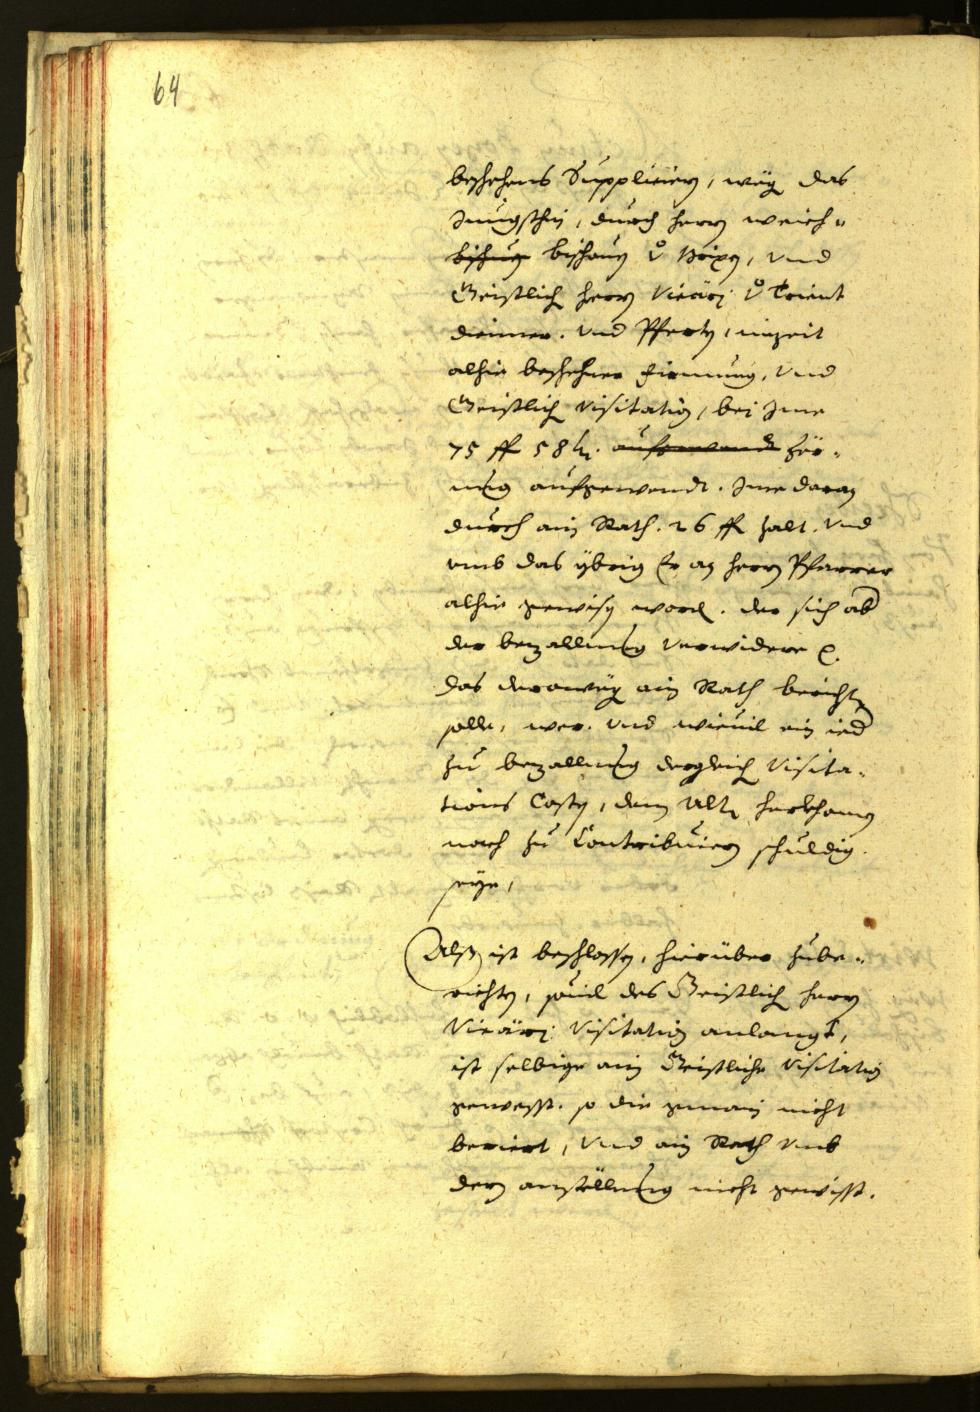 64
beschehens Suppliciern, weg das
Jungsthin, durch herrn weich-
bischoue bischouen v Brixen, vnd
Geistlich herrn Vicarj v Trient
diennern. vnd Pferdten, iungzeit
alhie beschehner Firmung, vnd
Geistlich Visitation, bej Jme
75 ff 58 kr. aufgewendt Zör-
ung aufgewendt. Jme daran
durch ain Rath. 26 ff zalt. vnd
vmb das ÿbrig Er an herrn Pfarrer
alhie gewisen word. der sich ab
der bezallung verwidere etc.
das derowegen ain Rath berichten
solle, wer. vnd wieuil ein ied
zu bezallung dergleich Visita-
tions Costen, dem Altn herkhomen
nach zu Contribuiern schuldig
seÿe,
Alß ist beschlossen, hierüber zube-
richten, souil des Geistlich herrn
Vicarj Visitation anlangt,
ist selbige ain Geistliche Visitation
gewesst. so die gmain nicht
beriert, vnd ain Rath vmb
dern anstellung nicht gewisst.